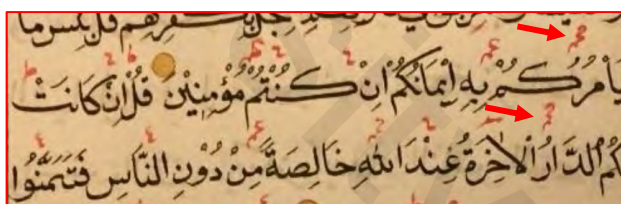 بِكُفْرِهِمْ قُلْ بِئْسَ مَا
يَاْمُرُكُمْ بِهِ اِيمَانُكُمْ اِنْ كُنْتُمْ مُؤْمِنِينَ قُلْ اِنْ كَانَتْ
كُمُ الدَّارُ الْاٰخِرَةُ عِنْدَ اللهِ خَالِصَةً مِنْ دُونِ النَّاسِ فَتَمَنَّوُا